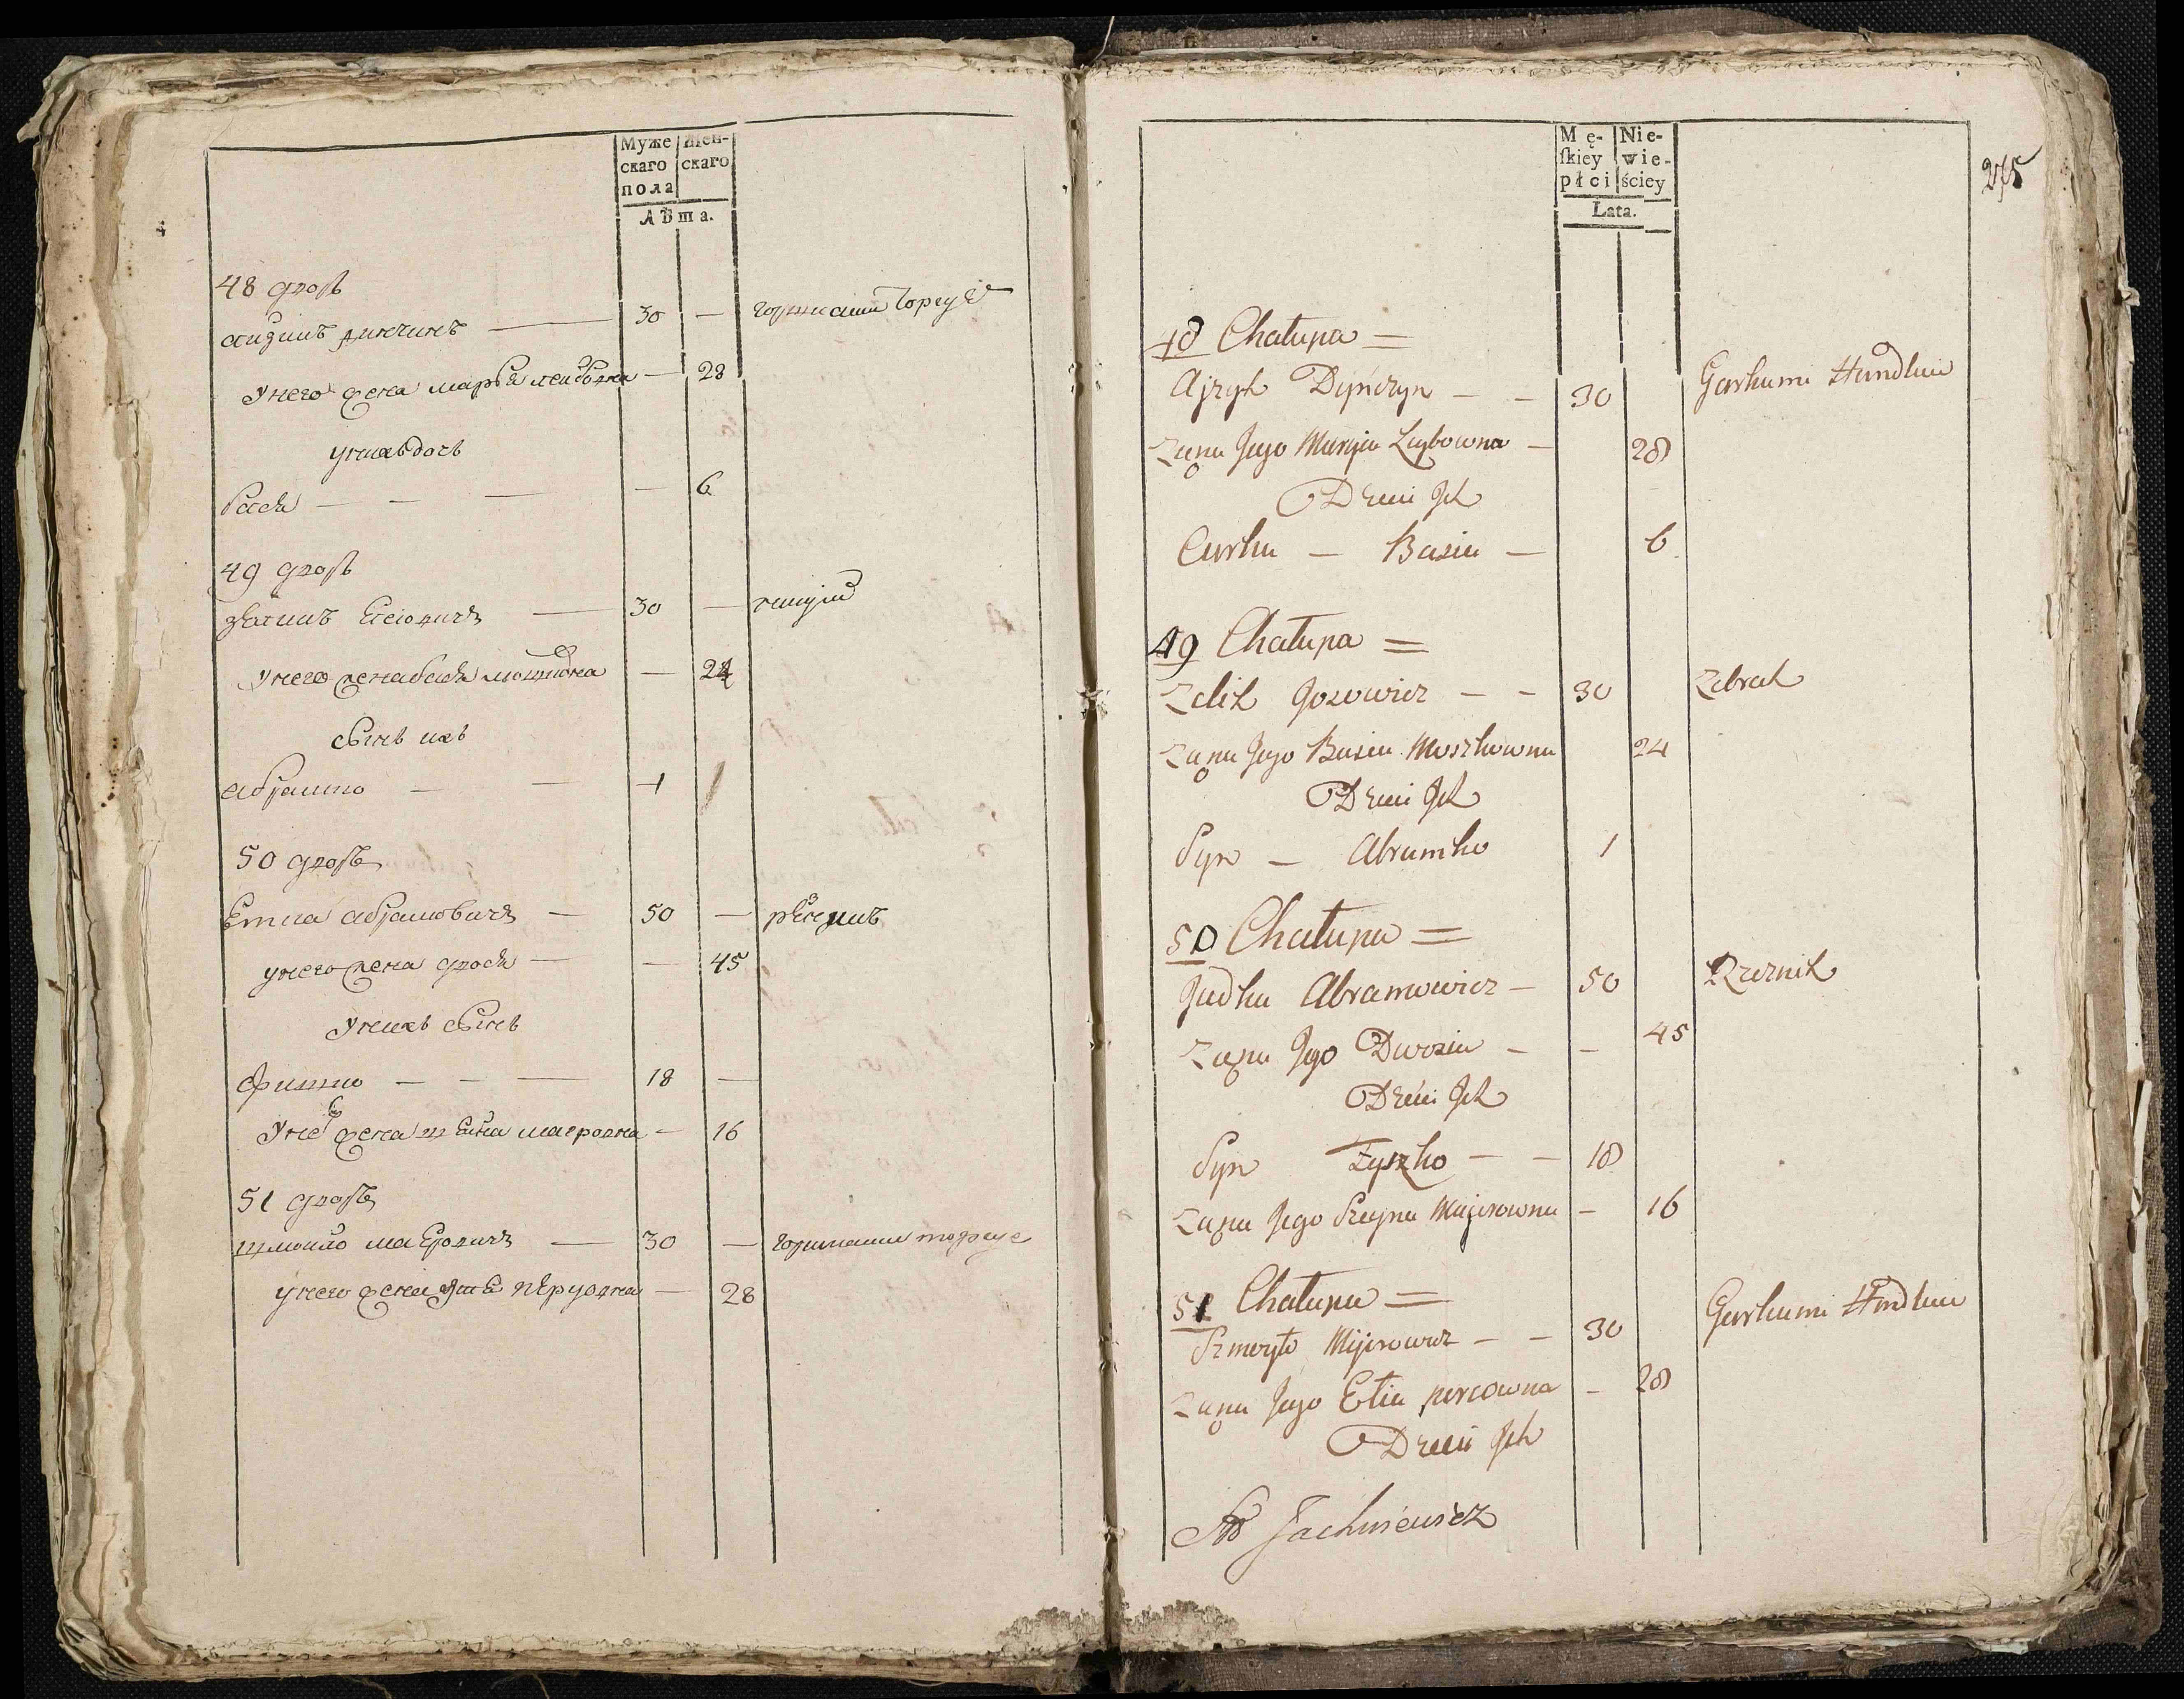 Муже
скаго
пола
Жен-
скаго
Лѣта.
48 дворъ
аизикъ динчинъ — 30 —
унего жена марья леибовна — 28
унихъ дочь
бася — — — — 6
49 дворъ
зеликъ — 30 —
унего жена бася мошковна — 24
сынъ ихъ
абрамко — — 1
50 дворъ
абрамовичъ — 50 — рѣзникъ
унего жена двося — — 45
унихъ сынъ
фишко — — — 18 —
унего жена шейна маеровна — 16
51 дворъ
шмойло маеровичъ — 30 — горшками торгуе
унего жена — 28
Mę-
skiey
płci
Nie-
wie-
ściey
Lata.
275
48 Chałupa =
Ajzyk Dyńczyn — — 30 Garkami Handluie
Żona Jego Maryia Leybowna — 28
Dzieci Ich
Curka — Basia — 6
49 Chałupa =
Zelik Jozowicz — — 30 Żebrak
Żona Jego Basia Moszkowna 24
Dzieci Ich
Syn — Abramko 1
50 Chałupa =
Judka Abramowicz — 50 Rzeznik
Żona Jego Dwosia — — 45
Dzieci Ich
Syn Fyszko — — 18
Żona Jego Szejna Majerowna — 16
51 Chałupa =
Szmoyło Mijerowicz — — 30 Garkami Handluie
Żona Jego Etia percowna — 28
Dzieci Ich
Jachniewicz